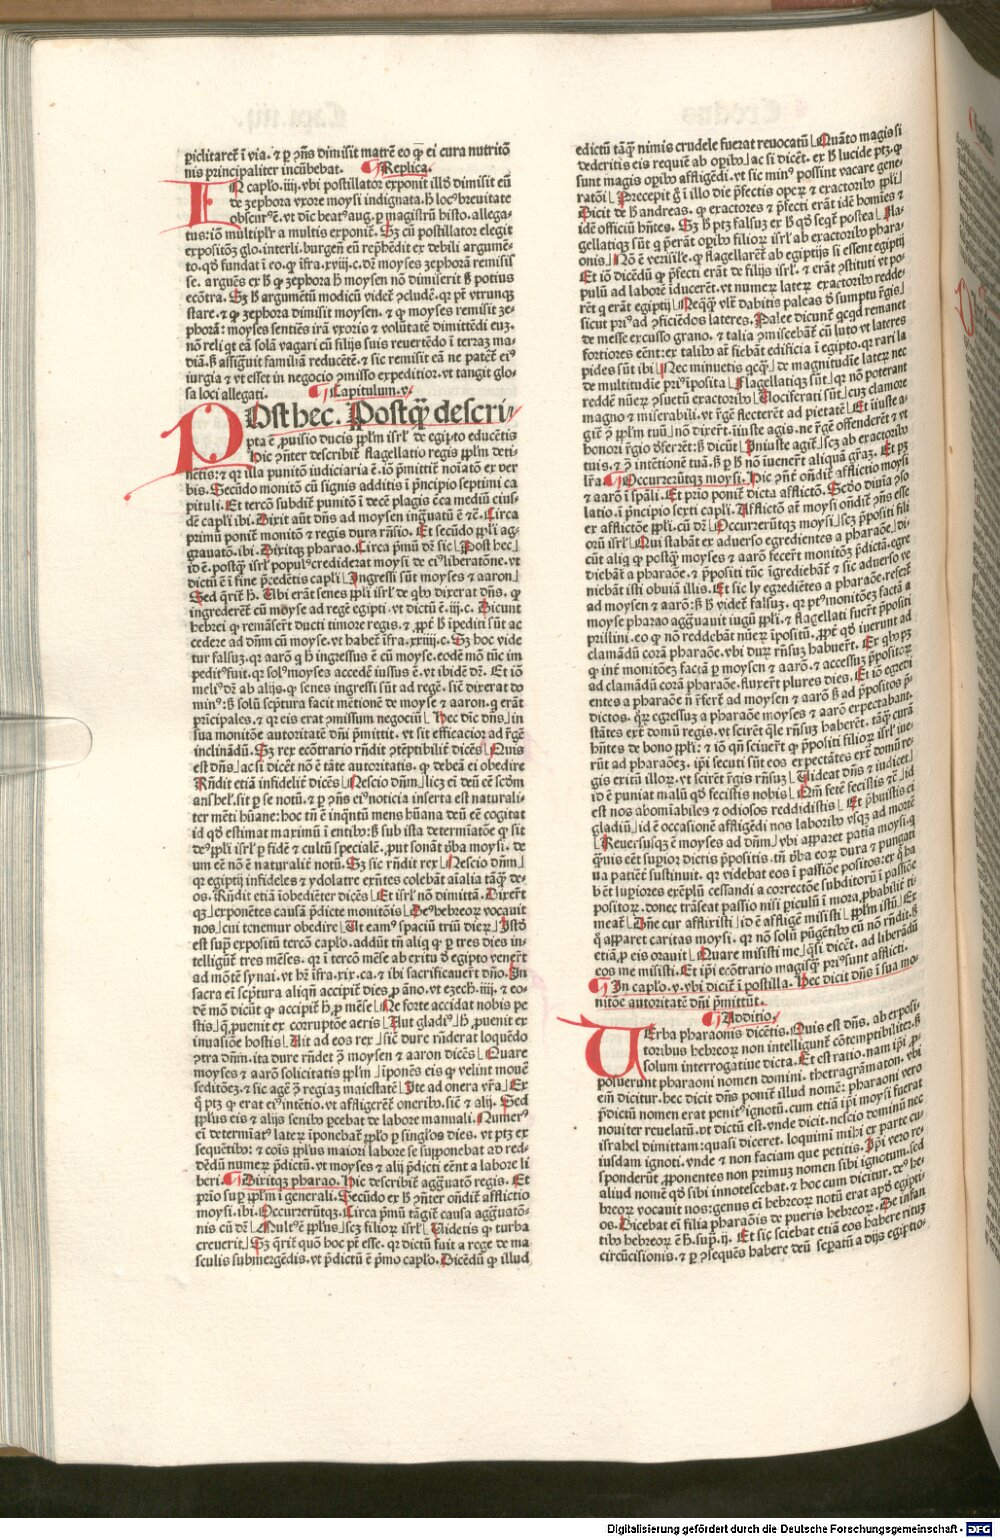 piclitaret̄ ī via. ⁊ ꝑ ꝯn̄s dimisit matrē eo ꝙ ei cura nutritō
nis principaliter incūbebat. ¶Replica.
IN caplo. iiij. vbi postillator exponit illd̄ dimisit eū
de zephora vxore moysi indignata. h̄ locꝰ breuitate
obscurꝰ ē. vt dic beatꝰ aug. ꝑ magistrū histo. allega-
tus: iō multiplr̄ a multis exponit̄. Sꝫ cū postillator elegit
expositōꝫ glo. interli. burgen̄ eū rep̄hēdit ex debili argumē-
to. qd̄ fundat ī eo. ꝙ īfra. xviij. c. dr̄ moyses zephorā remisis
se. arguēs ex h̄ ꝙ zephora h̄ moysen nō dimiserit s̄ potius
ecōtra. Sꝫ h̄ argumētū modicū videt̄ ꝯcludē. qꝛ pt̄ vtrunqꝫ
stare. ⁊ ꝙ zephora dimisit moysen. ⁊ ꝙ moyses remisit ze-
phorā: moyses sentiēs irā vxoris ⁊ volūtatē dimittēdi euꝫ.
nō reliqt eā solā vagari cū filijs suis reuertēdo ī terraꝫ ma-
diā. s̄ assignuit familiā reducētē. ⁊ sic remisit eā ne patet̄ eiꝰ
iurgia ⁊ vt esset in negocio ꝯmisso expeditior. vt tangit glo-
sa loci allegati. ¶Capitulum. v.
POst hec. Postqꝫ descri-
pta ē ꝓuisio ducis ppl̄m isrl̄ de egipto educētis
hic ꝯn̄ter describit̄ flagellatio regis ppl̄m deti-
nētis: ⁊ qꝛ illa punitō iudiciaria ē. iō p̄mittit̄ noīatō ex ver
bis. Secūdo monitō cū signis additis ī p̄ncipio septimi ca
pituli. Et tercō subdit̄ punitō ī decē plagis c̄ca mediū eius-
dē capli ibi. Dixit aūt dn̄s ad moysen ingȓuatū ē ⁊c̄. Circa
primū ponit̄ monitō ⁊ regis dura rn̄sio. Et secūdo ppl̄i ag-
grauatō. ibi. Dixitqꝫ pharao. Circa p̄mū dr̄ sic ⌊Post hec⌋
id ē. postqꝫ isrl̄ populꝰ crediderat moysi de eiꝰ liberatōne. vt
dictū ē ī fine p̄cedētis capli ⌊Ingressi sūt moyses ⁊ aaron⌋
Sed q̄rit̄ h̄. Vbi erāt senes ppl̄i isrl̄ de qbꝰ dixerat dn̄s. ꝙ
ingrederēt̄ cū moyse ad regē egipti. vt dictū ē. iij. c. Dicunt
hebrei ꝙ remāserūt ducti timore regis. ⁊ ꝓpt̄ h̄ ipediti sūt ac
cedere ad dn̄m cū moyse. vt habet̄ īfra. xxiiij. c. Sꝫ hoc vide
tur falsuꝫ. qꝛ aarō q̄ h̄ ingressus ē cū moyse. eodē mō tūc im
peditꝰ fuit. qꝛ solꝰ moyses accedē iussus ē. vt ibidē dr̄. Et iō
meliꝰ dr̄ ab alijs. ꝙ senes ingressi sūt ad regē. sic̄ dixerat do
minꝰ: s̄ solū scp̄tura facit mētionē de moyse ⁊ aaron. q̄ erāt
pr̄icipales. ⁊ qꝛ eis erat ꝯmissum negociū⌊ Hec dic̄ dn̄s⌋ in
sua monitōe autoritatē dn̄i p̄mittit. vt sit efficacior ad r̄gē
inclinādū. Sꝫ rex ecōtrario rn̄dit ꝯtēptibilit̄ dicēs⌊ Quis
est dn̄s⌋ ac si dicet̄ nō ē tāte autoritatis. ꝙ debeā ei obedire
Rn̄dit etiā infidelit̄ dicēs⌊ Nescio dn̄m⌋ licꝫ ei deū cē scd̄m
anshel. sit ꝑ se notū. ⁊ ꝑ ꝯn̄s eiꝰ noticia inserta est naturali-
ter mēti hūane: hoc tn̄ ē inqn̄tū mens hūana deū eē cogitat
id qd̄ estimat maximū ī entibꝰ: s̄ sub ista determīatōe ꝙ sit
deꝰ ppl̄i isrl̄ ꝑ fidē ⁊ cultū speciale. put sonāt v̄ba moysi. de-
um eē nō ē naturalit̄ notū. Sꝫ sic rn̄dit rex⌊ Nescio dn̄m⌋
qꝛ egiptij infideles ⁊ ydolatre exn̄tes colebāt aīalia tāqꝫ de-
os. Rn̄dit etiā iobediēter dicēs⌊ Et isrl̄ nō dimittā. Dixerūt
qꝫ⌋ exponētes causā p̄dicte monitōis⌊ Deꝰ hebreoꝝ vocauit
nos⌋ cui tenemur obedire⌊ Vt eamꝰ spaciū triū dieꝝ⌋ Istō
est suꝑ expositū tercō caplo. addūt tn̄ aliq̄ ꝙ ꝑ tres dies in-
telligūt̄ tres mēses. qꝛ ī tercō mēse ab exitu d̄ egipto venerūt
ad mōtē synai. vt hr̄ īfra. xix. ca. ⁊ ibi sacrificauerūt dn̄o. In
sacra ei scp̄tura aliqn̄ accipit̄ dies ꝓ āno. vt ezech. iiij. ⁊ eo-
dē mō dicūt ꝙ accipit̄ h̄ ꝓ mēse⌊ Ne forte accidat nobis pe
stis⌋ q̄ ꝓuenit ex corruptōe aeris⌊ Aut gladiꝰ⌋ h̄ ꝓuenit ex
inuasiōe hostis⌊ Ait ad eos rex⌋ sic̄ dure rn̄derat loquēdo
ꝯtra dn̄m. ita dure rn̄det ꝯ̄ moysen ⁊ aaron dicēs⌊ Quare
moyses ⁊ aarō solicitatis ppl̄m⌋ īponēs eis ꝙ velint mouē
seditōeꝫ. ⁊ sic agē ꝯ̄ regiaꝫ maiestatē⌊ Ite ad onera vr̄a⌋ Ex
q̄ ptꝫ ꝙ erat eiꝰ itentio. vt affligerēt̄ oneribꝰ. sic̄ ⁊ alij. Sed
ppl̄us eis ⁊ alijs senibꝰ ꝑcebat de labore manuali. Numerꝰ
ei determīatꝰ lateꝝ īponebat̄ ppl̄o ꝑ singl̄os dies. vt ptꝫ ex
seqn̄tibꝰ: ⁊ cōis ppl̄us maiori labore se supponebat ad red-
dēdū numeꝝ p̄dictū. vt moyses ⁊ alij p̄dicti eēnt a labore li
beri. ¶⌊Dixitqꝫ pharao. Hic describit̄ aggȓuatō regis. Et
prīo suꝑ ppl̄m ī generali. Secūdo ex h̄ ꝯn̄ter on̄dit̄ afflictio
moysi. ibi. Occurrerūtqꝫ. Circa p̄mū tāgit̄ causa aggȓuatō-
nis cū dr̄⌊ Multꝰ ē ppl̄us⌋ scꝫ filioꝝ isrl̄⌊ Videtis ꝙ turba
creuerit⌋ Sꝫ q̄rit̄ quō hoc pt̄ esse. qꝛ dictū fuit a rege de ma
sculis submergēdis. vt p̄dictū ē p̄mo caplo. Dicēdū ꝙ illud
edictū tāqꝫ nimis crudele fuerat reuocatū⌊ Quāto magis si
dederitis eis requiē ab opibꝰ⌋ ac si dicet̄. ex h̄ lucide ptꝫ. ꝙ
sunt magis opibꝰ affligēdi. vt sic minꝰ possint vacare gene-
ratōi⌊ Precepit g̊ ī illo die p̄fectis opeꝝ ⁊ exactoribꝰ ppl̄i⌋
Dicit de h̄ andreas. ꝙ exactores ⁊ p̄fecti erāt idē homīes ⁊
idē officiū hn̄tes. Sꝫ h̄ ptꝫ falsuꝫ ex h̄ qd̄ seqt̄ postea⌊ Fla-
gellatiqꝫ sūt q̄ p̄erāt opibꝰ filioꝝ isrl̄ ab exactoribꝰ phara-
onis⌋ Nō ē verisile. ꝙ flagellarēt̄ ab egiptijs si essent egiptij
Et iō dicēdū ꝙ p̄fecti erāt de filijs isrl̄. ⁊ erāt ꝯstituti vt po-
pulū ad laborē iducerēt. vt numeꝝ lateꝝ exactoribꝰ redde-
rēt q̄ erāt egiptij⌊ Neqqꝫ vlt̄ dabitis paleas d̄ sumptu r̄gis⌋
sicut priꝰ ad ꝯficiēdos lateres. Palee dicunt̄ qcqd remanet
de messe excusso grano. ⁊ talia ꝯmiscebāt̄ cū luto vt lateres
fortiores eēnt: ex talibꝰ at̄ fiebāt edificia ī egipto. qꝛ rari la
pides sūt ibi⌊ Nec minuetis qcqꝫ⌋ de magnitudīe lateꝝ nec
de multitudīe priꝰ īposita⌊ Flagellatiqꝫ sūt⌋ qꝛ nō poterant
reddē nūeꝝ ꝯsuetū exactoribꝰ⌊ Vociferati sūt⌋ cuꝫ clamore
magno ⁊ miserabili. vt r̄gē flecterēt ad pietatē⌊ Et iiuste a-
git̄ ꝯ̄ ppl̄m tuū⌋ nō dixerūt. iiuste agis. ne r̄gē offenderēt ⁊ vt
honori r̄gio d̄ferrēt: s̄ dicūt⌊ Iniuste agit̄⌋ scꝫ ab exactoribꝰ
tuis. ⁊ ꝯ̄ intētionē tuā. s̄ ꝑ h̄ nō iuenerūt aliquā gr̄aꝫ. Et pꝫ
lr̄a. ¶⌊Occurrerūtqꝫ moysi. Hic ꝯn̄t̄ on̄dit̄ afflictio moysi
⁊ aarō ī spāli. Et prīo ponit̄ dicta afflictō. Secdo diuia ꝯso
latio. ī p̄ncipio sexti capli. Afflictō at̄ moysi on̄dit̄ ꝯn̄s esse
ex afflictōe ppl̄i. cū dr̄⌊ Occurrerūtqꝫ moysi⌋ scꝫ p̄positi fili
oꝝ isrl̄⌊ Qui stabāt ex aduerso egrediētes a pharaōe⌋ di-
cūt aliq̄ ꝙ postqꝫ moyses ⁊ aarō fecerūt monitōꝫ p̄dictā. egre
diebāt̄ a pharaōe. ⁊ p̄positi tūc īgrediebāt̄ ⁊ sic aduerso ve
niebāt isti obuiā illis. Et sic ly egrediētes a pharaōe. refert̄
ad moysen ⁊ aarō: s̄ h̄ videt̄ falsuꝫ. qꝛ ptꝰ monitōeꝫ factā a
moyse pharao aggȓuauit iugū ppl̄i. ⁊ flagellati fuerūt p̄positi
pristini. eo ꝙ nō reddebāt nūeꝝ īpositū. ꝓpt̄ qd̄ iuerunt ad
clamādū corā pharaōe. vbi duꝝ rn̄suꝫ habuerūt. Ex qbꝰ pꝫ
ꝙ int̄ monitōeꝫ factā ꝑ moysen ⁊ aarō. ⁊ accessuꝫ p̄positoꝝ
ad clamādū corā pharaōe. fluxerūt plures dies. Et iō egredi
entes a pharaōe nō refert̄ ad moysen ⁊ aarō s̄ ad p̄positos p̄-
dictos. q̄ꝝ egressuꝫ a pharaōe moyses ⁊ aarō expectabant.
stātes ext̄ domū regis. vt scirēt q̄le rn̄suꝫ haberēt. tāqꝫ curā
hn̄tes de bono ppl̄i: ⁊ iō qn̄ sciuerūt ꝙ p̄positi filioꝝ isrl̄ iue-
rūt ad pharaōeꝫ. ip̄i secuti sūt eos expectātes ext̄ domū re-
gis exitū illoꝝ. vt scirēt r̄gis rn̄suꝫ⌊ Videat dn̄s ⁊ iudicet⌋
id ē puniat malū qd̄ fecistis nobis⌊ Qm̄ fetē fecistis ⁊c̄⌋ id
est nos abomīabiles ⁊ odiosos reddidistis⌊ Et p̄buistis ei
gladiū⌋ id ē occasionē affligēdi nos laboribꝰ vsqꝫ ad mortē
⌊Reuersusqꝫ ē moyses ad dn̄m⌋ vbi apparet patīa moysi. q
q̄uis eēt supior dictis p̄positis. tn̄ v̄ba eoꝝ dura ⁊ pungiti
ua patiēt̄ sustinuit. qꝛ videbat eos ī passiōe positos: ex q̄ ha
bēt supiores exēplū cessandi a correctōe subditoꝝ ī passiōe
positoꝝ. donec trāseat passio nisi piculū ī mora ꝓhabilit̄ ti-
meat⌊ Dn̄e cur afflixisti⌋ id ē affligē misisti⌊ ppl̄m istū⌋ Et
q̄ apparet caritas moysi. qꝛ nō solū pūgētibꝰ eū nō rn̄dit. s̄
etiā ꝓ eis orauit⌊ Quare misisti me⌋ q̄si dicēt. ad liberādū
eos me misisti. Et ip̄i ecōtrario magisqꝫ priꝰ sunt afflicti.
¶⌊In caplo. v. vbi dicit̄ ī postilla. Hec dicit dn̄s ī sua mo-
nitōe autoritatē dn̄i p̄mittūt.
¶Additio.
VErba pharaonis dicētis. Quis est dn̄s. ab exposi-
toribus hebreoꝝ non intelligunt̄ cōtemptibilit̄. s̄
solum interrogatiue dicta. Et est ratio. nam ip̄i. ꝓ-
posuerunt pharaoni nomen domini. thetragrāmaton. vbi
em̄ dicitur. hec dicit dn̄s ponit̄ illud nomē: pharaoni vero
p̄dictū nomen erat penitꝰ ignotū. cum etiā ip̄i moysi fuerat
nouiter reuelatū. vt dictū est. vnde dicit. nescio dominū nec
israhel dimittam: quasi diceret. loquimi mihi ex parte cu-
iusdam ignoti. vnde ⁊ non faciam que petitis. Ip̄i vero re-
sponderūt. ꝓponentes non primuꝫ nomen sibi ignotum. sed
aliud nomē qd̄ sibi innotescebat. ⁊ hoc cum dicitur. deꝰ he-
breoꝝ vocauit nos: genus eni hebreoꝝ notū erat apd̄ egipti
os. Dicebat ei filia pharaōis de pueris hebreoꝝ. De infan
tibꝰ hebreoꝝ ē h̄. sup̄. ij. Et sic sciebat etiā eos habere rituꝫ
circūcisionis. ⁊ ꝑ ꝯsequēs habere deū sepatū a dijs egiptioꝝ